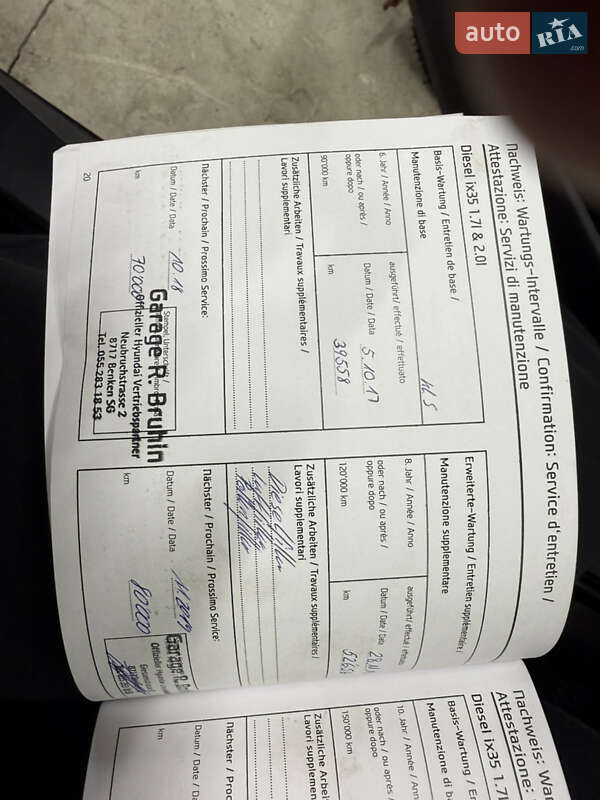 auto RIA .com
Nachweis: Wartungs-Intervalle / Confirmation: Service d'entretien /
Attestazione: Servizi di manutenzione
Diesel ix35 1.7l & 2.0l
Basis-Wartung / Entretien de base /
Manutenzione di base
6. Jahr / Année / Anno
oder nach / ou après /
oppure dopo
90'000 km
ausgeführt/ effectué / effettuato
Datum / Date / Data 5.10.17
km 39558
Zusätzliche Arbeiten / Travaux supplémentaires /
Lavori supplementari
Nächster / Prochain / Prossimo Service:
Datum / Date / Data 10.18
km 70'000
Stempel, Unterschrift /
Garage R. Bruhin
Offizieller Hyundai Vertriebspartner
Neubruchstrasse 2
8717 Benken SG
Tel. 055 283 18 53
20
Erweiterte-Wartung / Entretien supplémentaire /
Manutenzione supplementare
8. Jahr / Année / Anno
oder nach / ou après /
oppure dopo
120'000 km
ausgeführt/ effectué / effettua
Datum / Date / Data
km
Zusätzliche Arbeiten / Travaux supplémentaires /
Lavori supplementari
Nächster / Prochain / Prossimo Service:
Datum / Date / Data 11.2019
km 80'000
Garage R.
Nachweis: Wa
Attestazione:
Diesel ix35 1.7l
Basis-Wartung /
Manutenzione di ba
10. Jahr / Année / Ann
oder nach / ou après /
oppure dopo
150'000 km
Zusätzliche Arbeiten
Lavori supplementari
Nächster / Proch
Datum / Date / Da
km